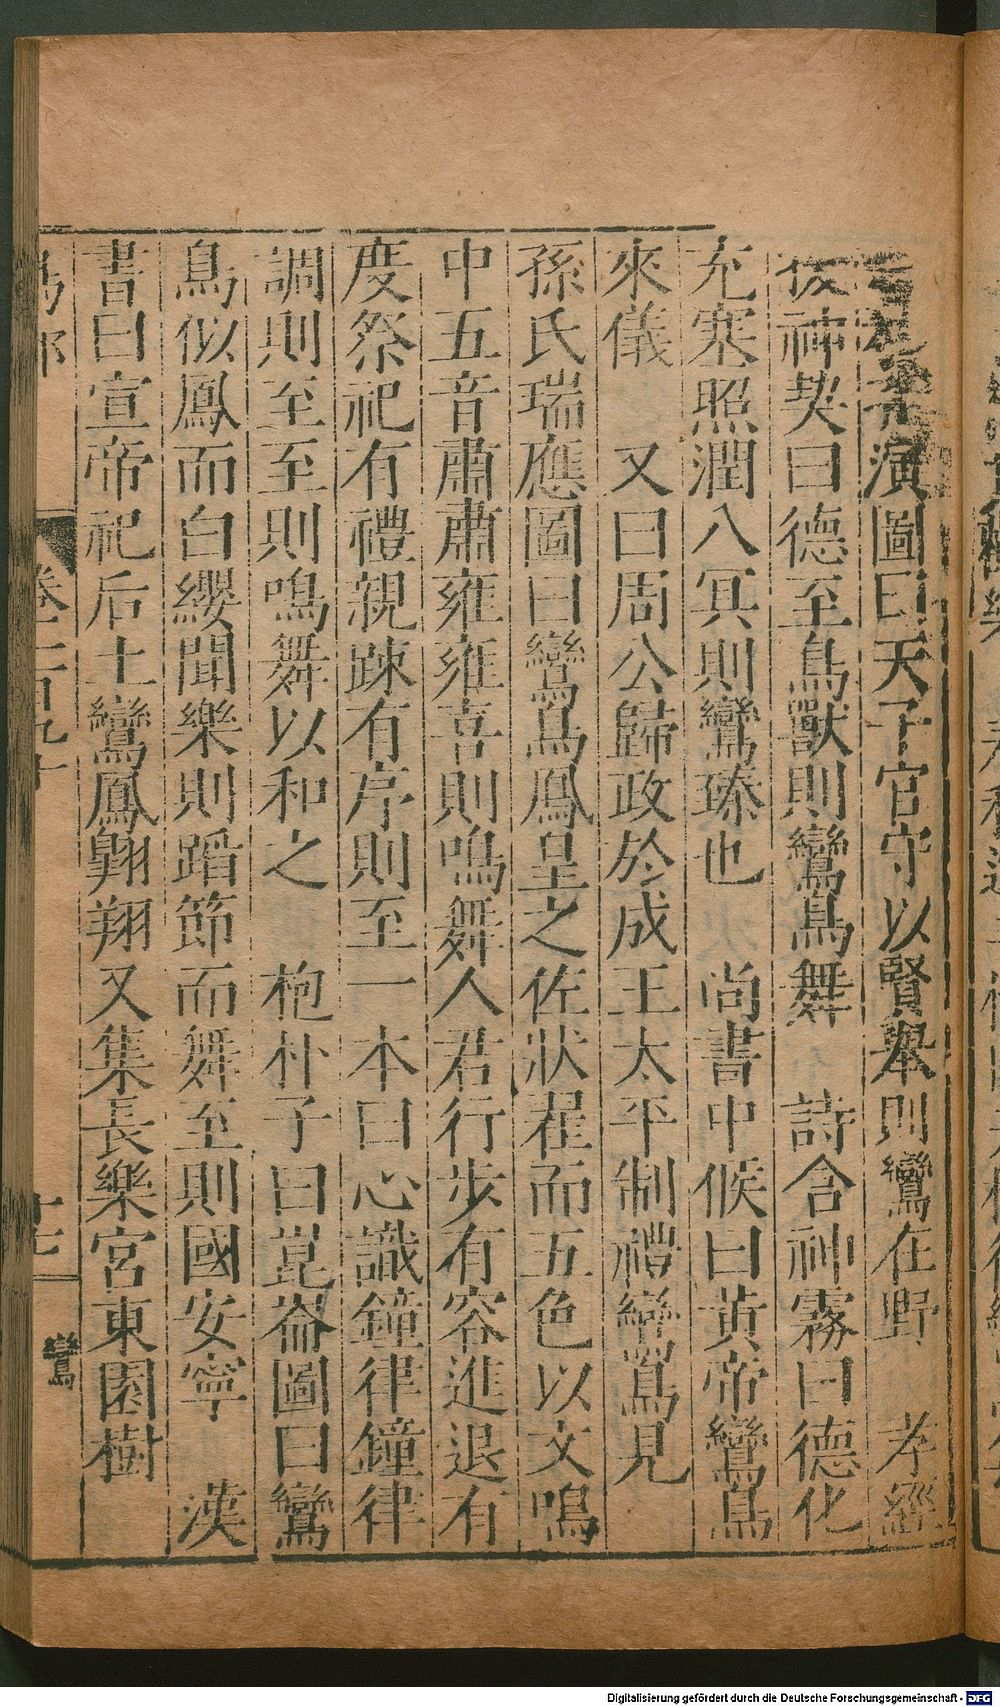 演圖曰天子官守以賢舉則鸞在野　孝經
援神契曰德至鳥獸則鸞鳥舞　詩含神霧曰德化
充塞照潤八冥則鸞臻也　尚書中候曰黃帝鸞鳥
來儀　又曰周公歸政於成王太平制禮鸞鳥見
孫氏瑞應圖曰鸞鳥鳳皇之佐狀翟而五色以文鳴
中五音肅肅雍雍喜則鳴舞人君行步有容進退有
度祭祀有禮親踈有序則至一本曰心識鐘律鐘律
調則至至則鳴舞以和之　枹朴子曰崑崙圖曰鸞
鳥似鳳而白纓聞樂則蹈節而舞至則國安寧　漢
書曰宣帝祀后土鸞鳳翱翔又集長樂宮東園樹
鳥部　卷二百九十　十七　鸞
Digitalisierung gefördert durch die Deutsche Forschungsgemeinschaft - DFG